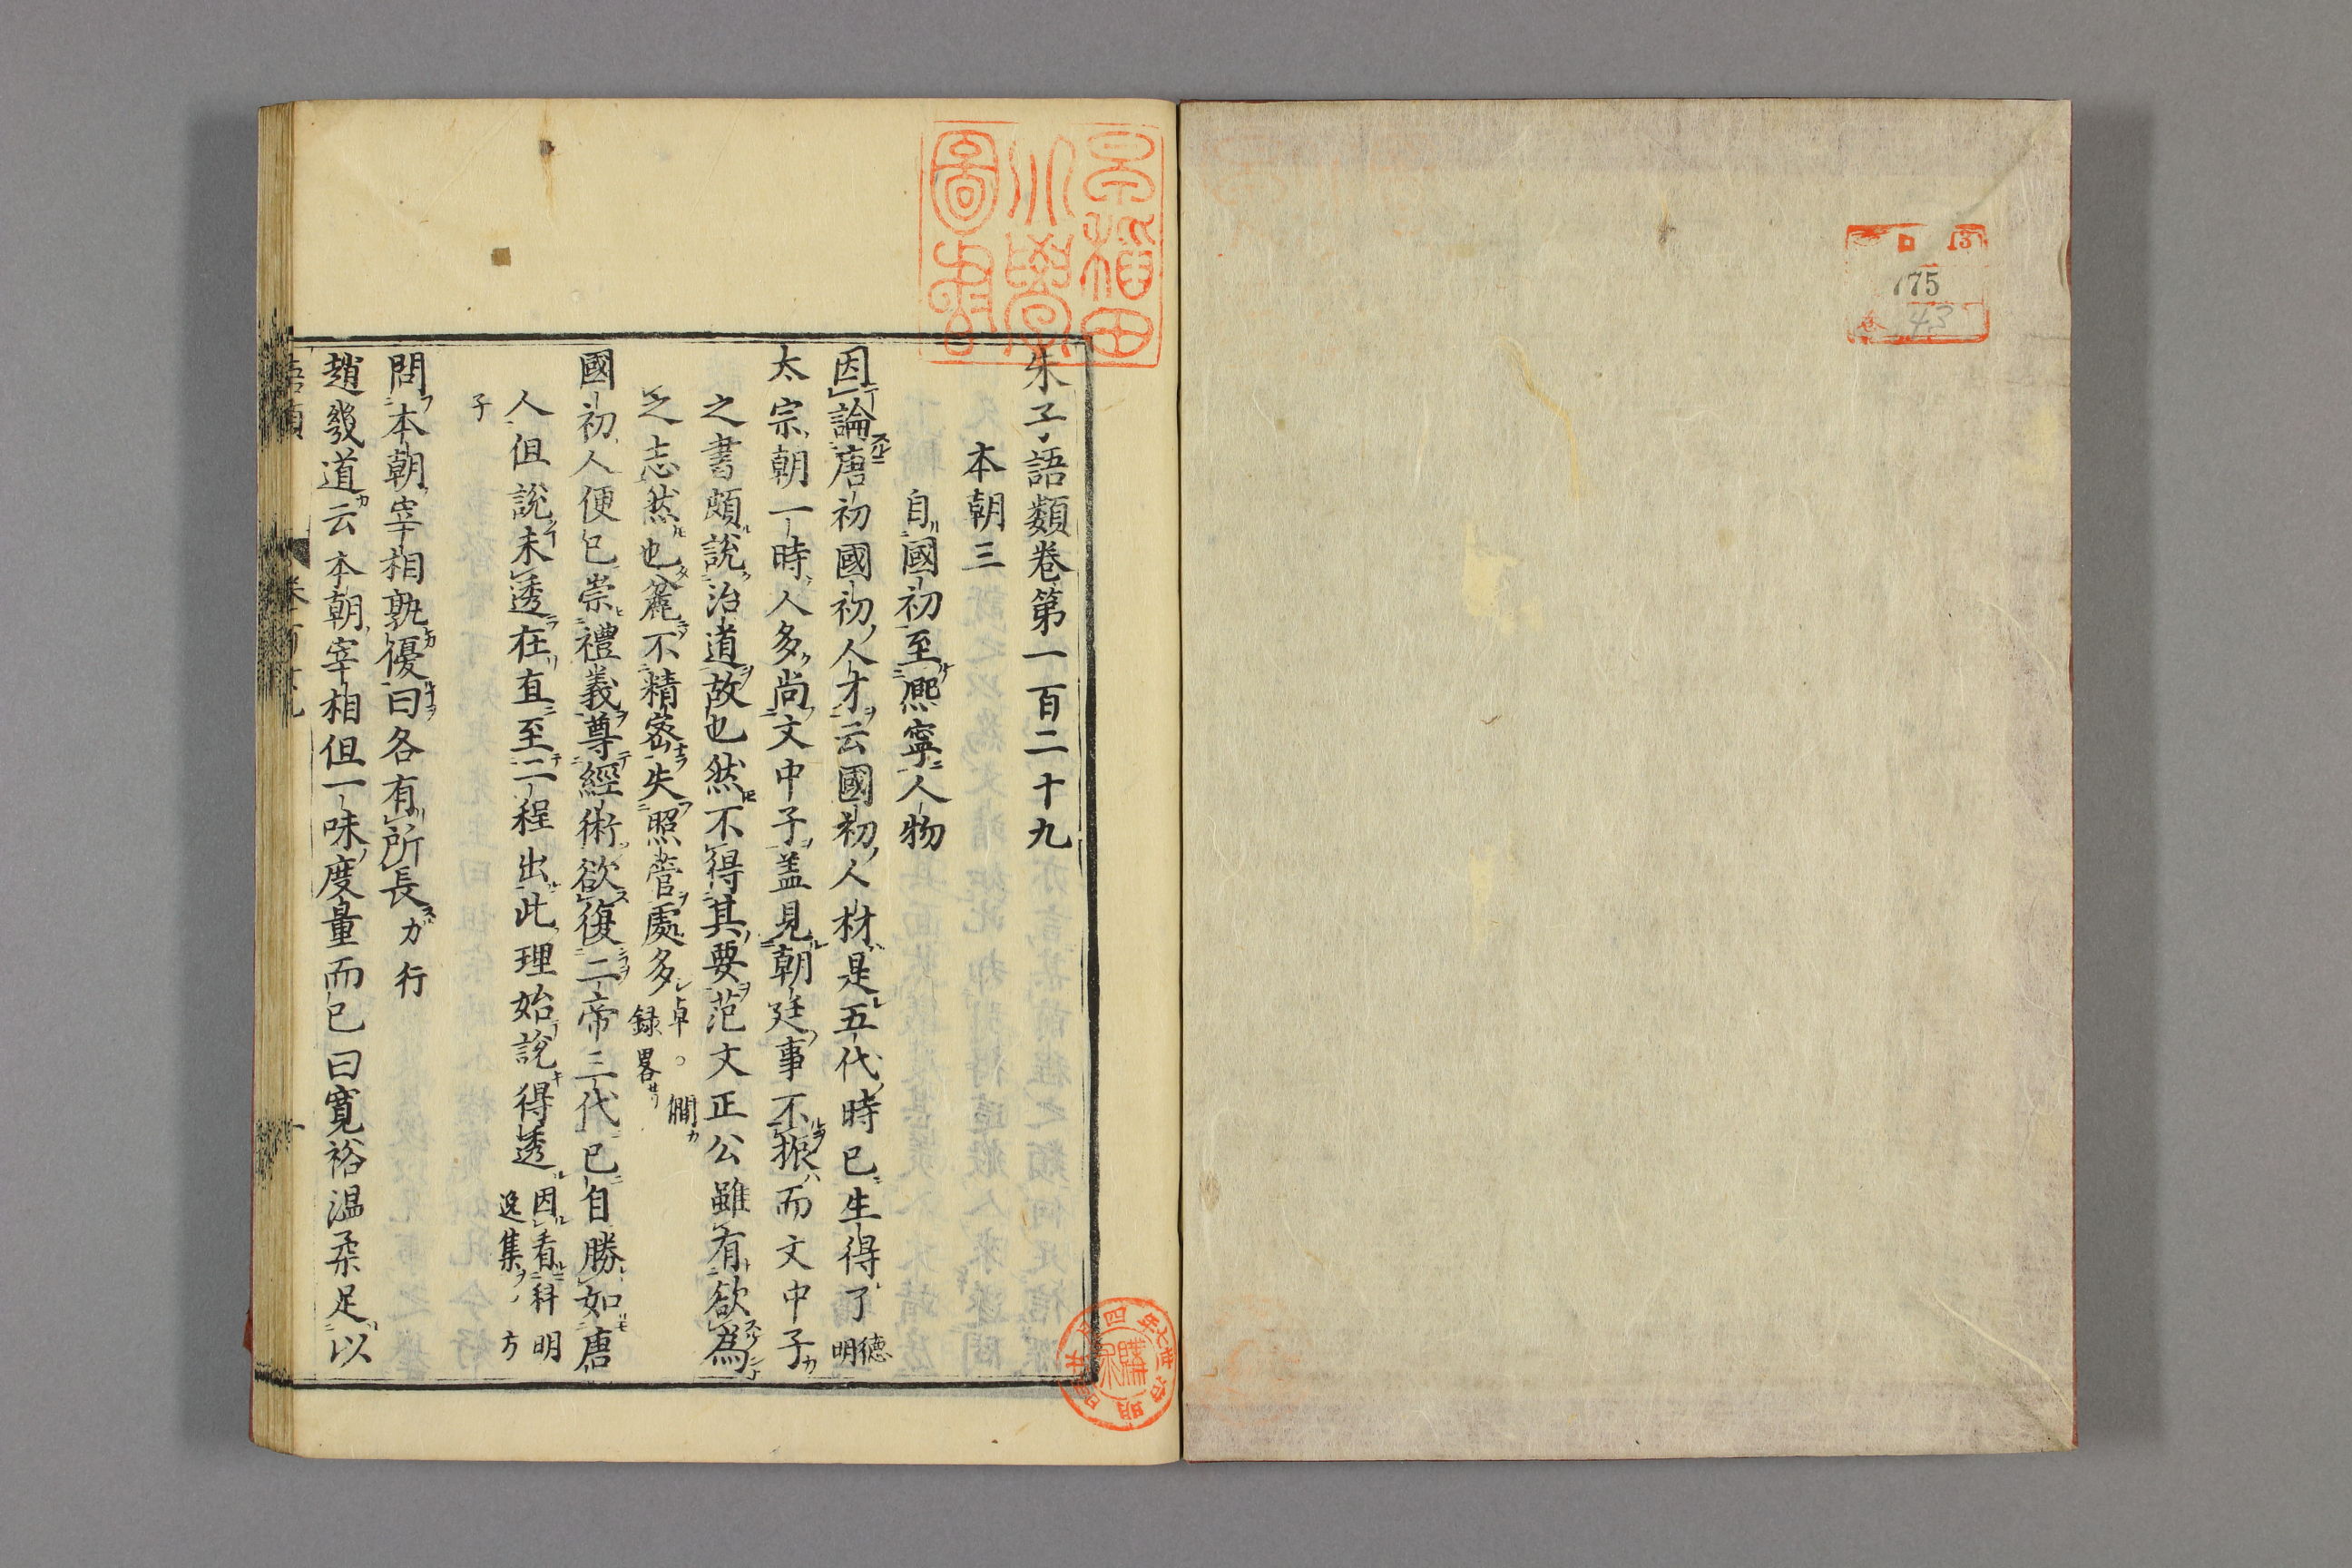 朱子語類卷第一百二十九
本朝三
自國初至熈寧人物
因論唐初國初人才云國初人材是五代時已生得了德明
太宗朝一時人多尚文中子盖見朝廷事不振而文中子
之書頗說治道故也然不得其要范文正公雖有欲為
之志然也麄不精密失照管處多卓。僩録畧
國初人便已崇禮義尊經術欲復二帝三代已自勝如唐
人但說未透在直至二程出此理始說得透因看科明逸集方
子
問本朝宰相孰優曰各有所長力行
趙幾道云本朝宰相但一味度量而已曰寬裕温柔足以
語類
早稻田
大學
圖書
3
175
43